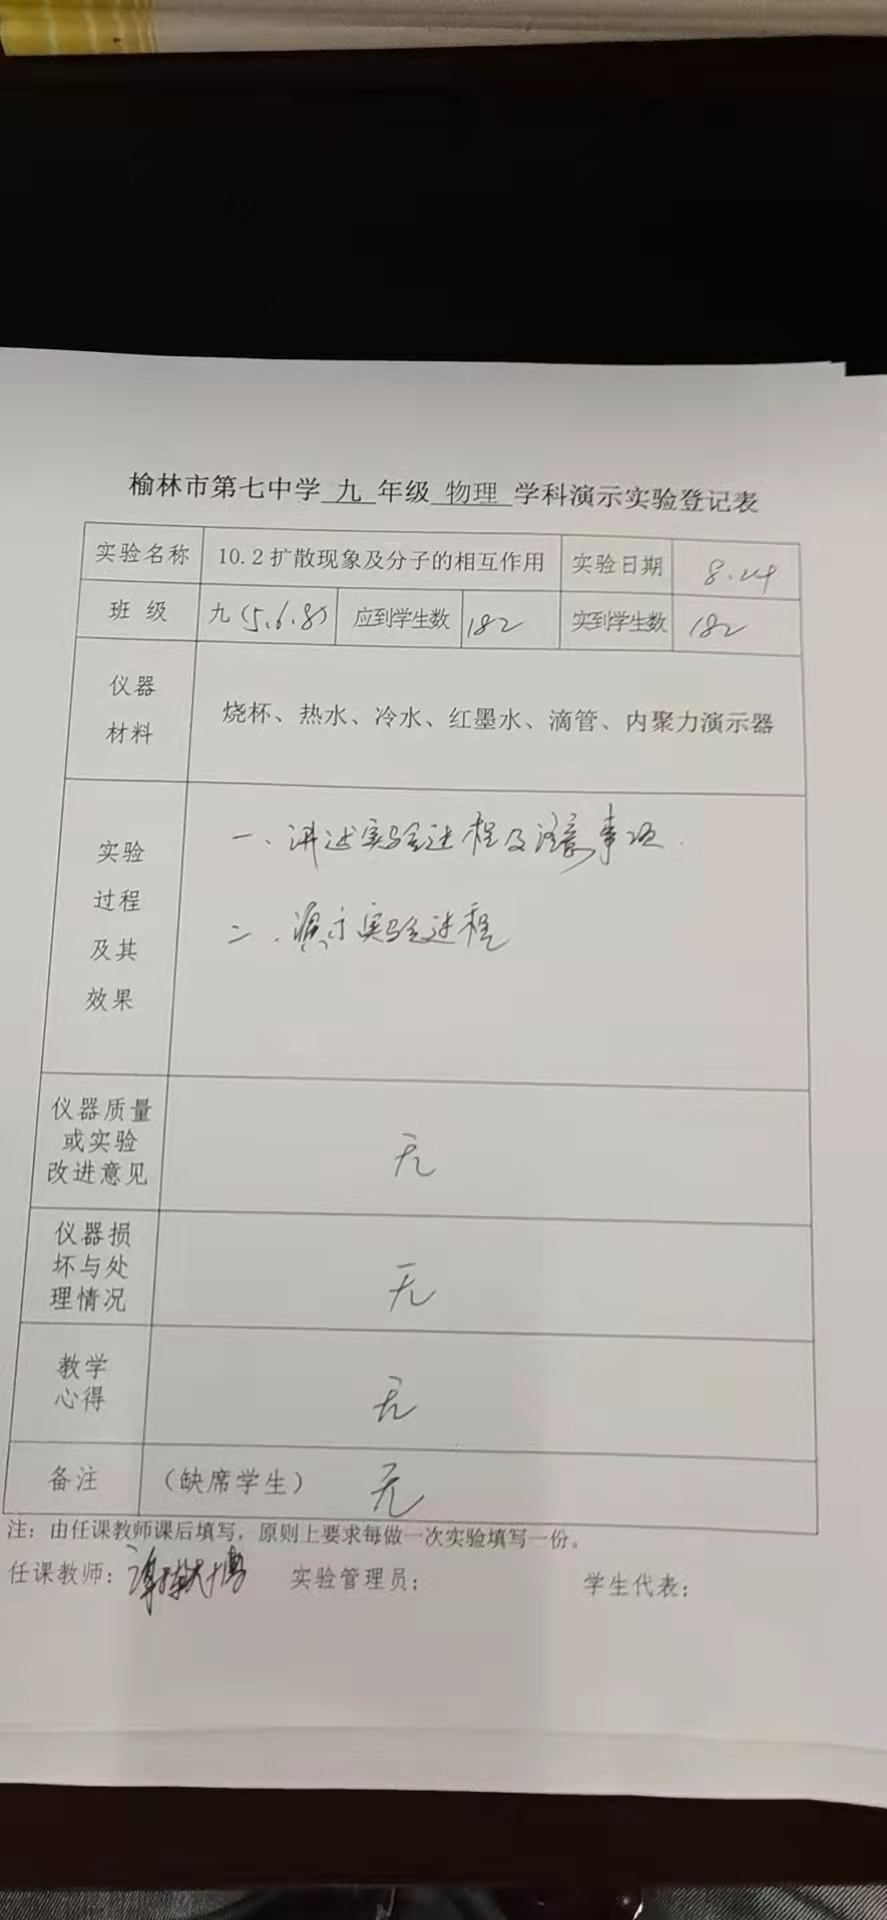 榆林市第七中学 九 年级 物理 学科演示实验登记表
实验名称 10.2扩散现象及分子的相互作用 实验日期 8.24
班 级 九(5.6.8) 应到学生数 182 实到学生数 182
仪器
材料
烧杯、热水、冷水、红墨水、滴管、内聚力演示器
实验
过程
及其
效果
一、讲述实验过程及注意事项.
二、演示实验过程
仪器质量
或实验
改进意见
无
仪器损
坏与处
理情况
无
教学
心得
无
备注 (缺席学生) 无
注：由任课教师课后填写，原则上要求每做一次实验填写一份。
任课教师： 实验管理员： 学生代表：